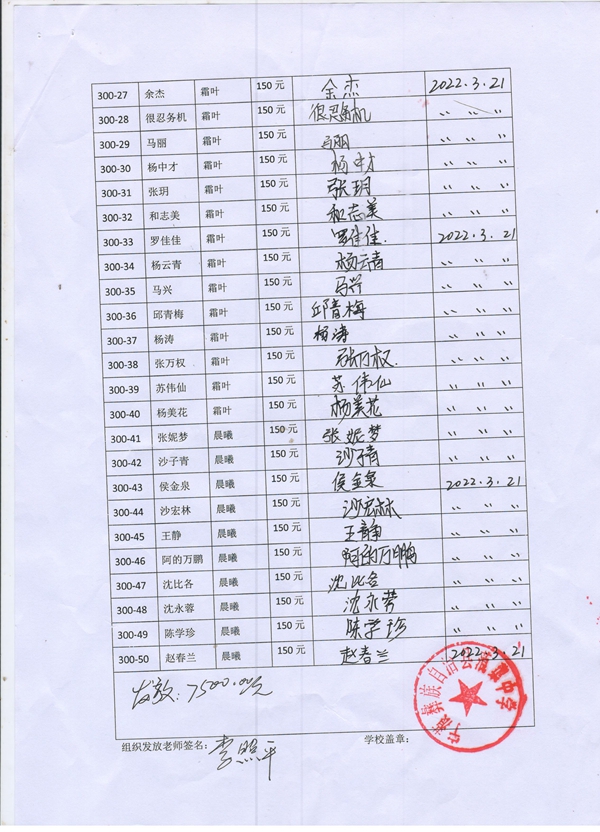 300-27 余杰 霜叶 150 元 余杰 2022.3.21
300-28 很忍务机 霜叶 150 元 很忍务机 〃 〃 〃
300-29 马丽 霜叶 150 元 马丽 〃 〃 〃
300-30 杨中才 霜叶 150 元 杨中才 〃 〃 〃
300-31 张玥 霜叶 150 元 张玥 〃 〃 〃
300-32 和志美 霜叶 150 元 和志美 〃 〃 〃
300-33 罗佳佳 霜叶 150 元 罗佳佳. 2022.3.21
300-34 杨云青 霜叶 150 元 杨云青 〃 〃 〃
300-35 马兴 霜叶 150 元 马兴 〃 〃 〃
300-36 邱青梅 霜叶 150 元 邱青梅 〃 〃 〃
300-37 杨涛 霜叶 150 元 杨涛 〃 〃 〃
300-38 张万权 霜叶 150 元 张万权. 〃 〃 〃
300-39 苏伟仙 霜叶 150 元 苏伟仙 〃 〃 〃
300-40 杨美花 霜叶 150 元 杨美花 〃 〃 〃
300-41 张妮梦 晨曦 150 元 张妮梦 〃 〃 〃
300-42 沙子青 晨曦 150 元 沙子青 〃 〃 〃
300-43 侯金泉 晨曦 150 元 侯金泉 2022.3.21
300-44 沙宏林 晨曦 150 元 沙宏林 〃 〃 〃
300-45 王静 晨曦 150 元 王静 〃 〃 〃
300-46 阿的万鹏 晨曦 150 元 阿的万鹏 〃 〃 〃
300-47 沈比各 晨曦 150 元 沈比各 〃 〃 〃
300-48 沈永蓉 晨曦 150 元 沈永蓉 〃 〃 〃
300-49 陈学珍 晨曦 150 元 陈学珍 〃 〃 〃
300-50 赵春兰 晨曦 150 元 赵春兰 2022.3.21
发放:7500.00元
组织发放老师签名: 李照平 学校盖章:
彝族自治县 中学